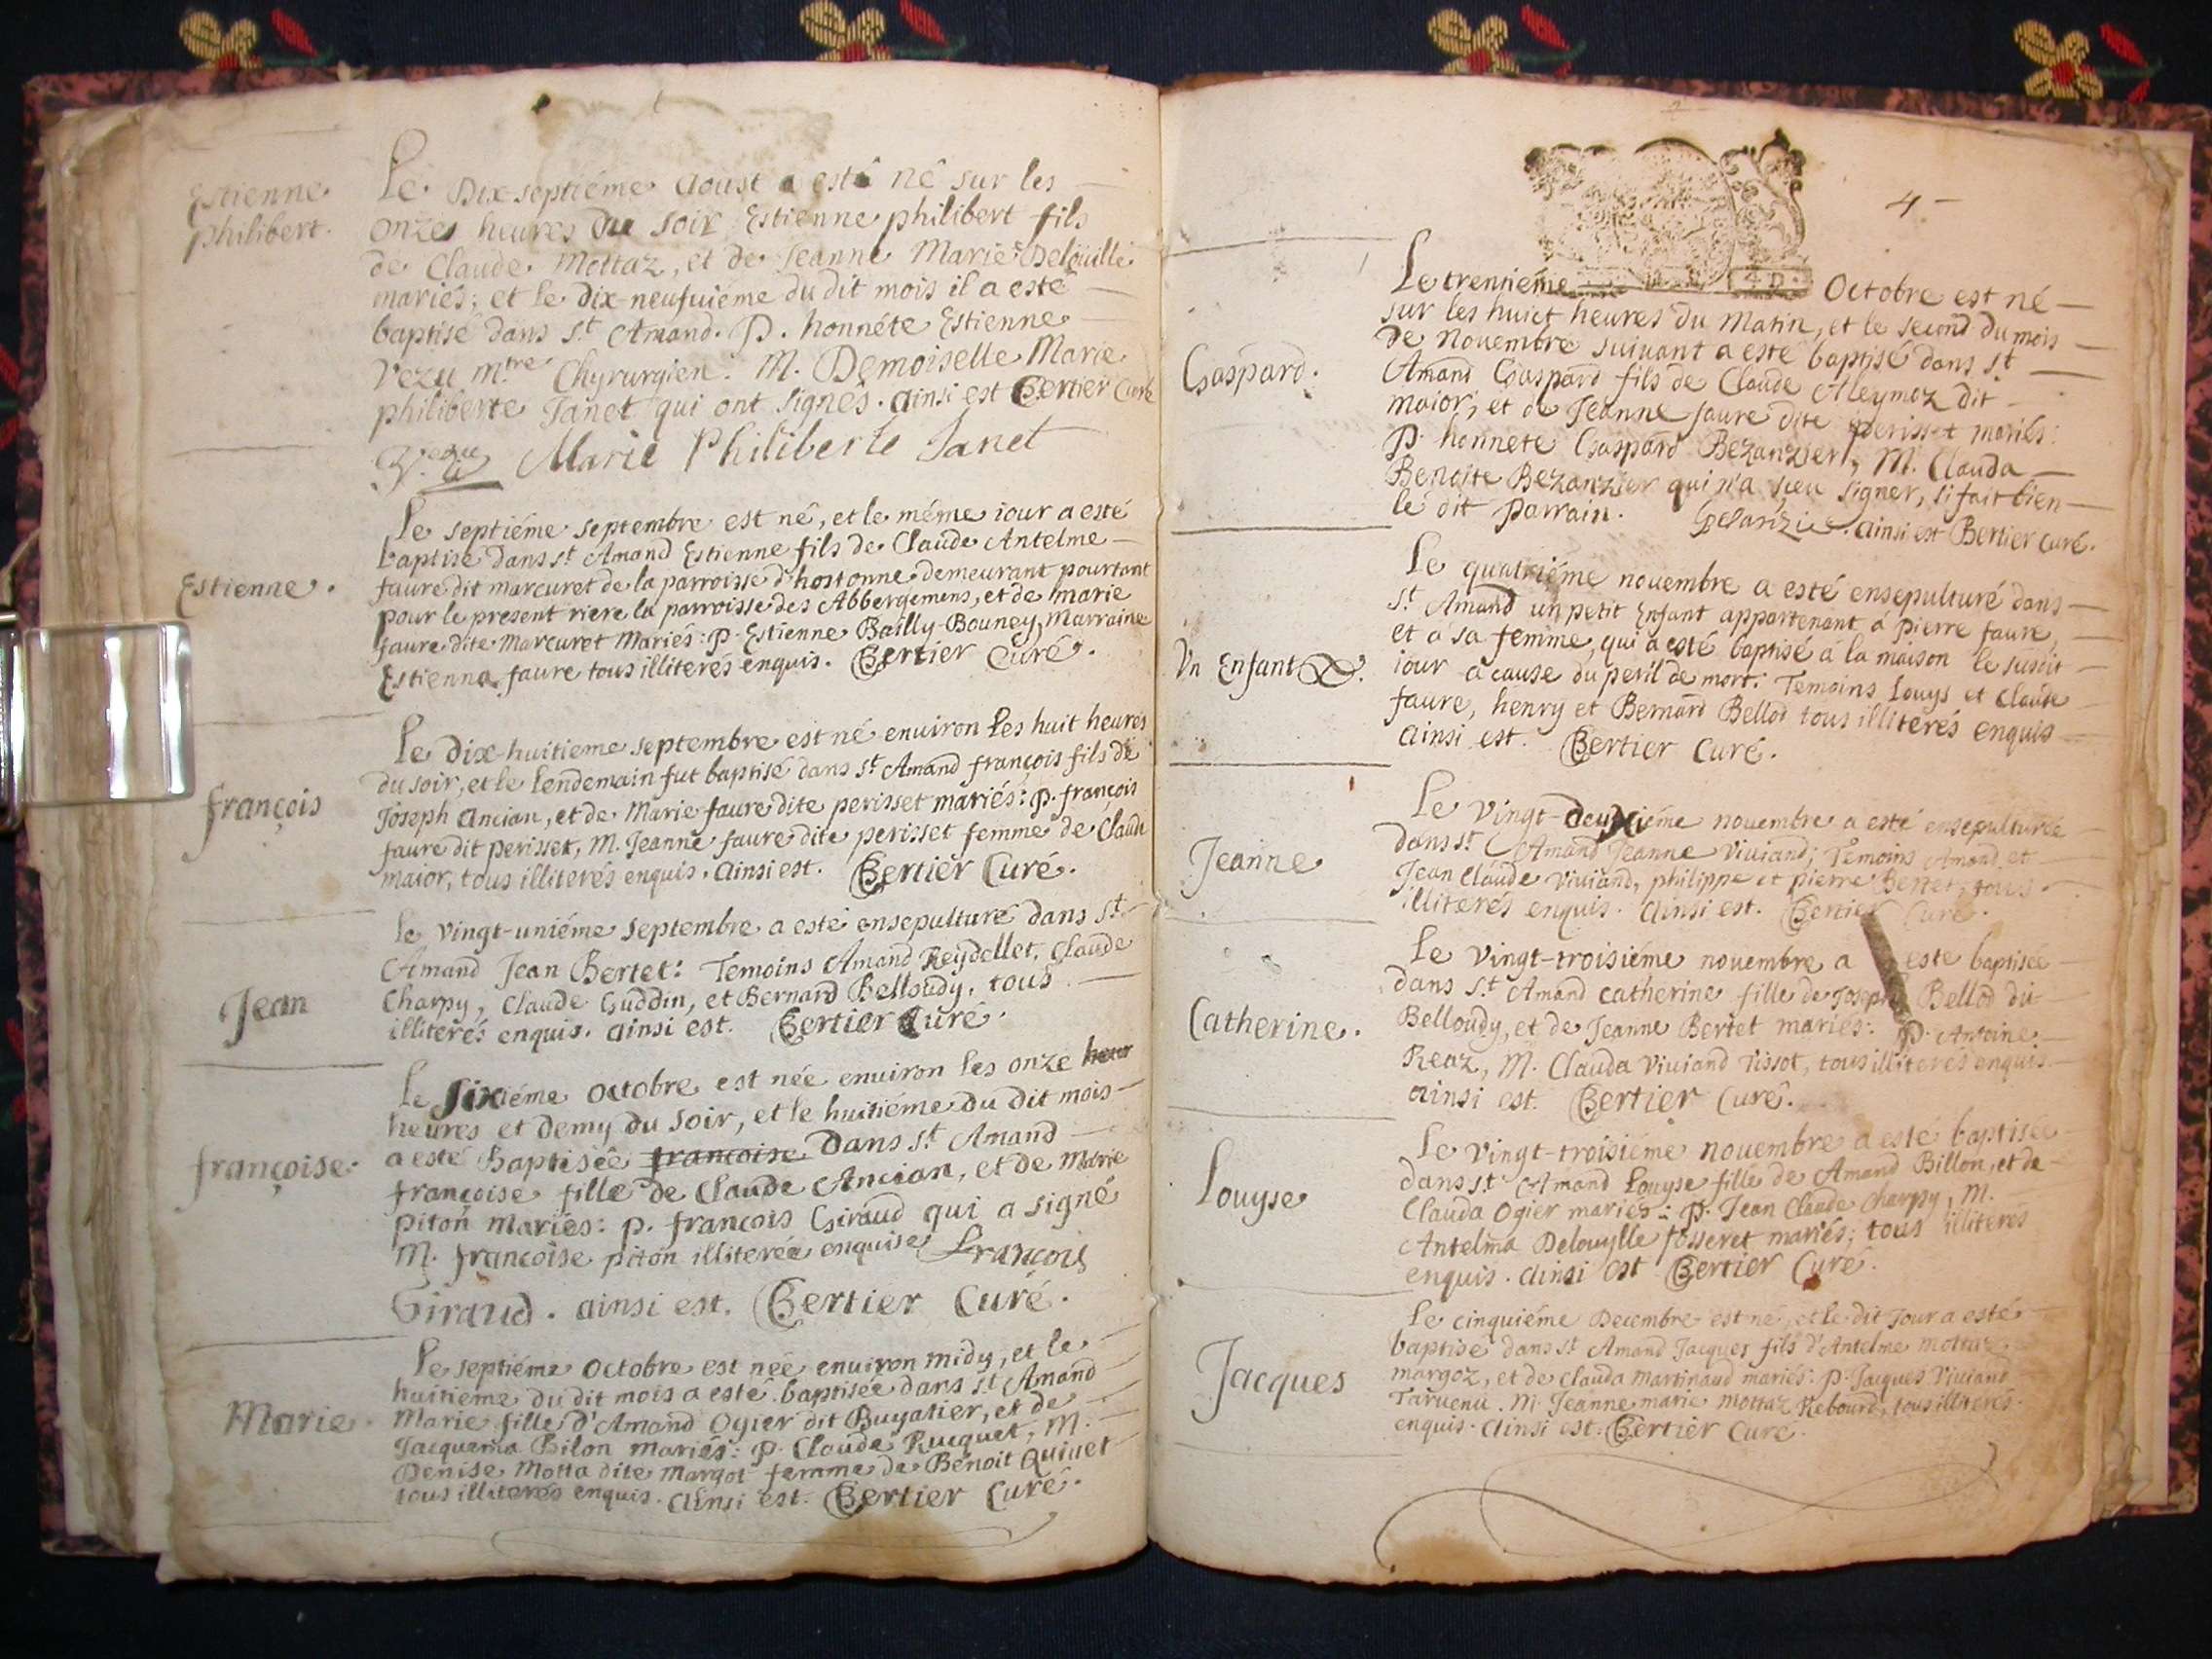 Estienne
philibert.
Le Dix-septiéme Aoust a esté né sur les
onzes heures du soir Estienne philibert fils
de Claude Mottaz, et de Jeanne Marie Delouille
mariés; et le dix-neufuiéme du dit mois il a esté
baptisé dans st Amand. P. honnéte Estienne
Vezu mtre Chyrurgien. M. Demoiselle Marie
philiberte Janet qui ont signés. Ainsi est Bertier Curé
Marie Philiberte Janet
Estienne.
Le septiéme septembre est né, et le méme iour a esté
baptisé dans st Amand Estienne fils de Claude Antelme
faure dit marcuret de la parroisse d'hostonne demeurant pourtant
pour le present riere la parroisse des Abbergemens, et de marie
faure dite Marcuret Mariés: P. Estienne Bailly-Bouney, Marraine
Estienna faure tous illiterés enquis. Bertier Curé.
françois
Le Dix-huitieme septembre est né enuiron les huit heures
du soir, et le lendemain fut baptisé dans st Amand françois fils de
Joseph Ancian, et de Marie faure dite perisset mariés: P. françois
faure dit perisset, M. Jeanne faure dite perisset femme de Claude
maior, tous illiterés enquis. Ainsi est. Bertier Curé.
Jean
Le vingt-uniéme septembre a esté ensepulturé dans st
Amand Jean Bertet: Temoins Amand Reydellet, Claude
Charpy, Claude Guddin, et Bernard Belloudy, tous
illiterés enquis. ainsi est. Bertier Curé.
françoise.
Le sixiéme octobre est née enuiron les onze heur
heures et demy du soir, et le huitiéme du dit mois
a esté Baptisée francoise dans st Amand
françoise fille de Claude Ancian, et de Marie
piton mariés: p. francois Giraud qui a signé
M. francoise piton illiterée enquise François
Giraud. ainsi est. Bertier Curé.
Marie.
Le septiéme octobre est née enuiron midy, et le
huitieme du dit mois a esté baptisée dans st Amand
Marie fille d'Amand Ogier dit Bugatier, et de
Jacquema Bilon mariés: P. Claude Rucquet, M.
Denise Motta dite margot femme de Benoit Quinet
tous illiterés enquis. Ainsi est. Bertier Curé.
4
Gaspard.
Le trentiéme Octobre est né
sur les huict heures du Matin, et le second du mois
de Novembre suiuant a esté baptisé dans st
Amand Gaspard fils de Claude Aleymoz dit
maior, et de Jeanne faure dite perisset mariés:
P. honnete Gaspard Bezanzier, M. Clauda
Benoite Bezanzier qui n'a sceu signer, si fait bien
le dit parrain. ainsi est Bertier curé.
Vn Enfant.
Le quatriéme novembre a esté ensepulturé dans
st Amand un petit Enfant appartenant a pierre faure,
et a sa femme, qui a esté baptisé á la maison le susdit
iour a cause du peril de mort: Temoins Louys et Claude
faure, henry et Bernard Bellod tous illiterés enquis
Ainsi est. Bertier Curé.
Jeanne
Le vingt-deuxiéme novembre a esté ensepulturée
dans st Amand Jeanne Viuiand; Temoins Amand et
Jean Claude Viuiand, philippe et pierre Bertet, tous
illiterés enquis. Ainsi est. Bertier Curé.
Catherine.
Le vingt-troisiéme novembre a esté baptisée
dans st Amand catherine fille de Joseph Bellod dit
Belloudy, et de Jeanne Bertet mariés: P. Antoine
Reaz, M. Clauda Viuiand Tissot, tous illiterés enquis.
ainsi est. Bertier Curé.
Louyse
Le vingt-troisiéme novembre a esté baptisée
dans st Amand Louyse fille de Amand Billon, et de
Clauda Ogier mariés: P. Jean Claude Charpy, M.
Antelma Delouylle fosseret mariés; tous illiterés
enquis. Ainsi est Bertier Curé.
Jacques
Le cinquiéme Decembre est né, et le dit Jour a esté
baptisé dans st Amand Jacques fils d'Antelme Mottaz
margoz, et de Clauda Martinaud mariés: P. Jacques Viuiand
Taruenu. M. Jeanne marie Mottaz Rebourd, tous illiterés.
enquis. Ainsi est. Bertier Curé.